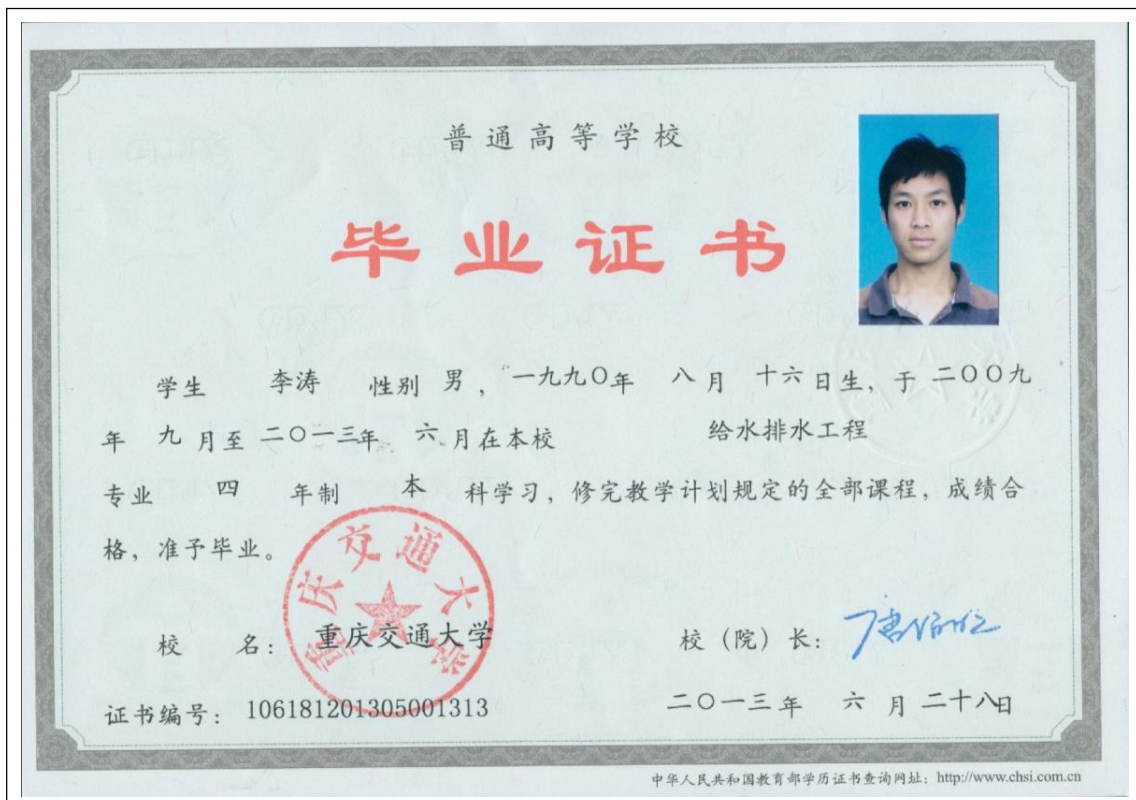 普通高等学校
毕业证书
学生 李涛 性别 男，一九九〇年 八月 十六日生，于 二〇〇九
年 九月至 二〇一三年 六月在本校 给水排水工程
专业 四 年制 本 科学习，修完教学计划规定的全部课程，成绩合
格，准予毕业。
重庆交通大学
校 名：重庆交通大学 校（院）长：
证书编号：106181201305001313 二〇一三年 六月二十八日
中华人民共和国教育部学历证书查询网址：http://www.chsi.com.cn